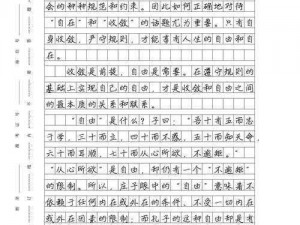 会的种种规范和约束。因此如何正确地对待
“自在”和“收敛”的话题尤为重要。只有自
身收敛，严守规则，才能享有人生的自由和自
在。
收敛是前提，自由是常要。在遵守规则的
基础上实现自己的自由，是收敛和自由之间
的最本质的关系和联系。
“自由”是什么？子曰：“吾十有五而志
于学，三十而立，四十而不惑，五十而知天命，
六十而耳顺，七十而从心所欲，不逾矩。”
“从心所欲”是自由，却仍有一个“不逾矩”
的限制。所以，庄子眼中的“自由”意味着不
依赖于任何内在或外在的条件，不受一切内在
或外在因素的限制；而孔子的这种自由却是有